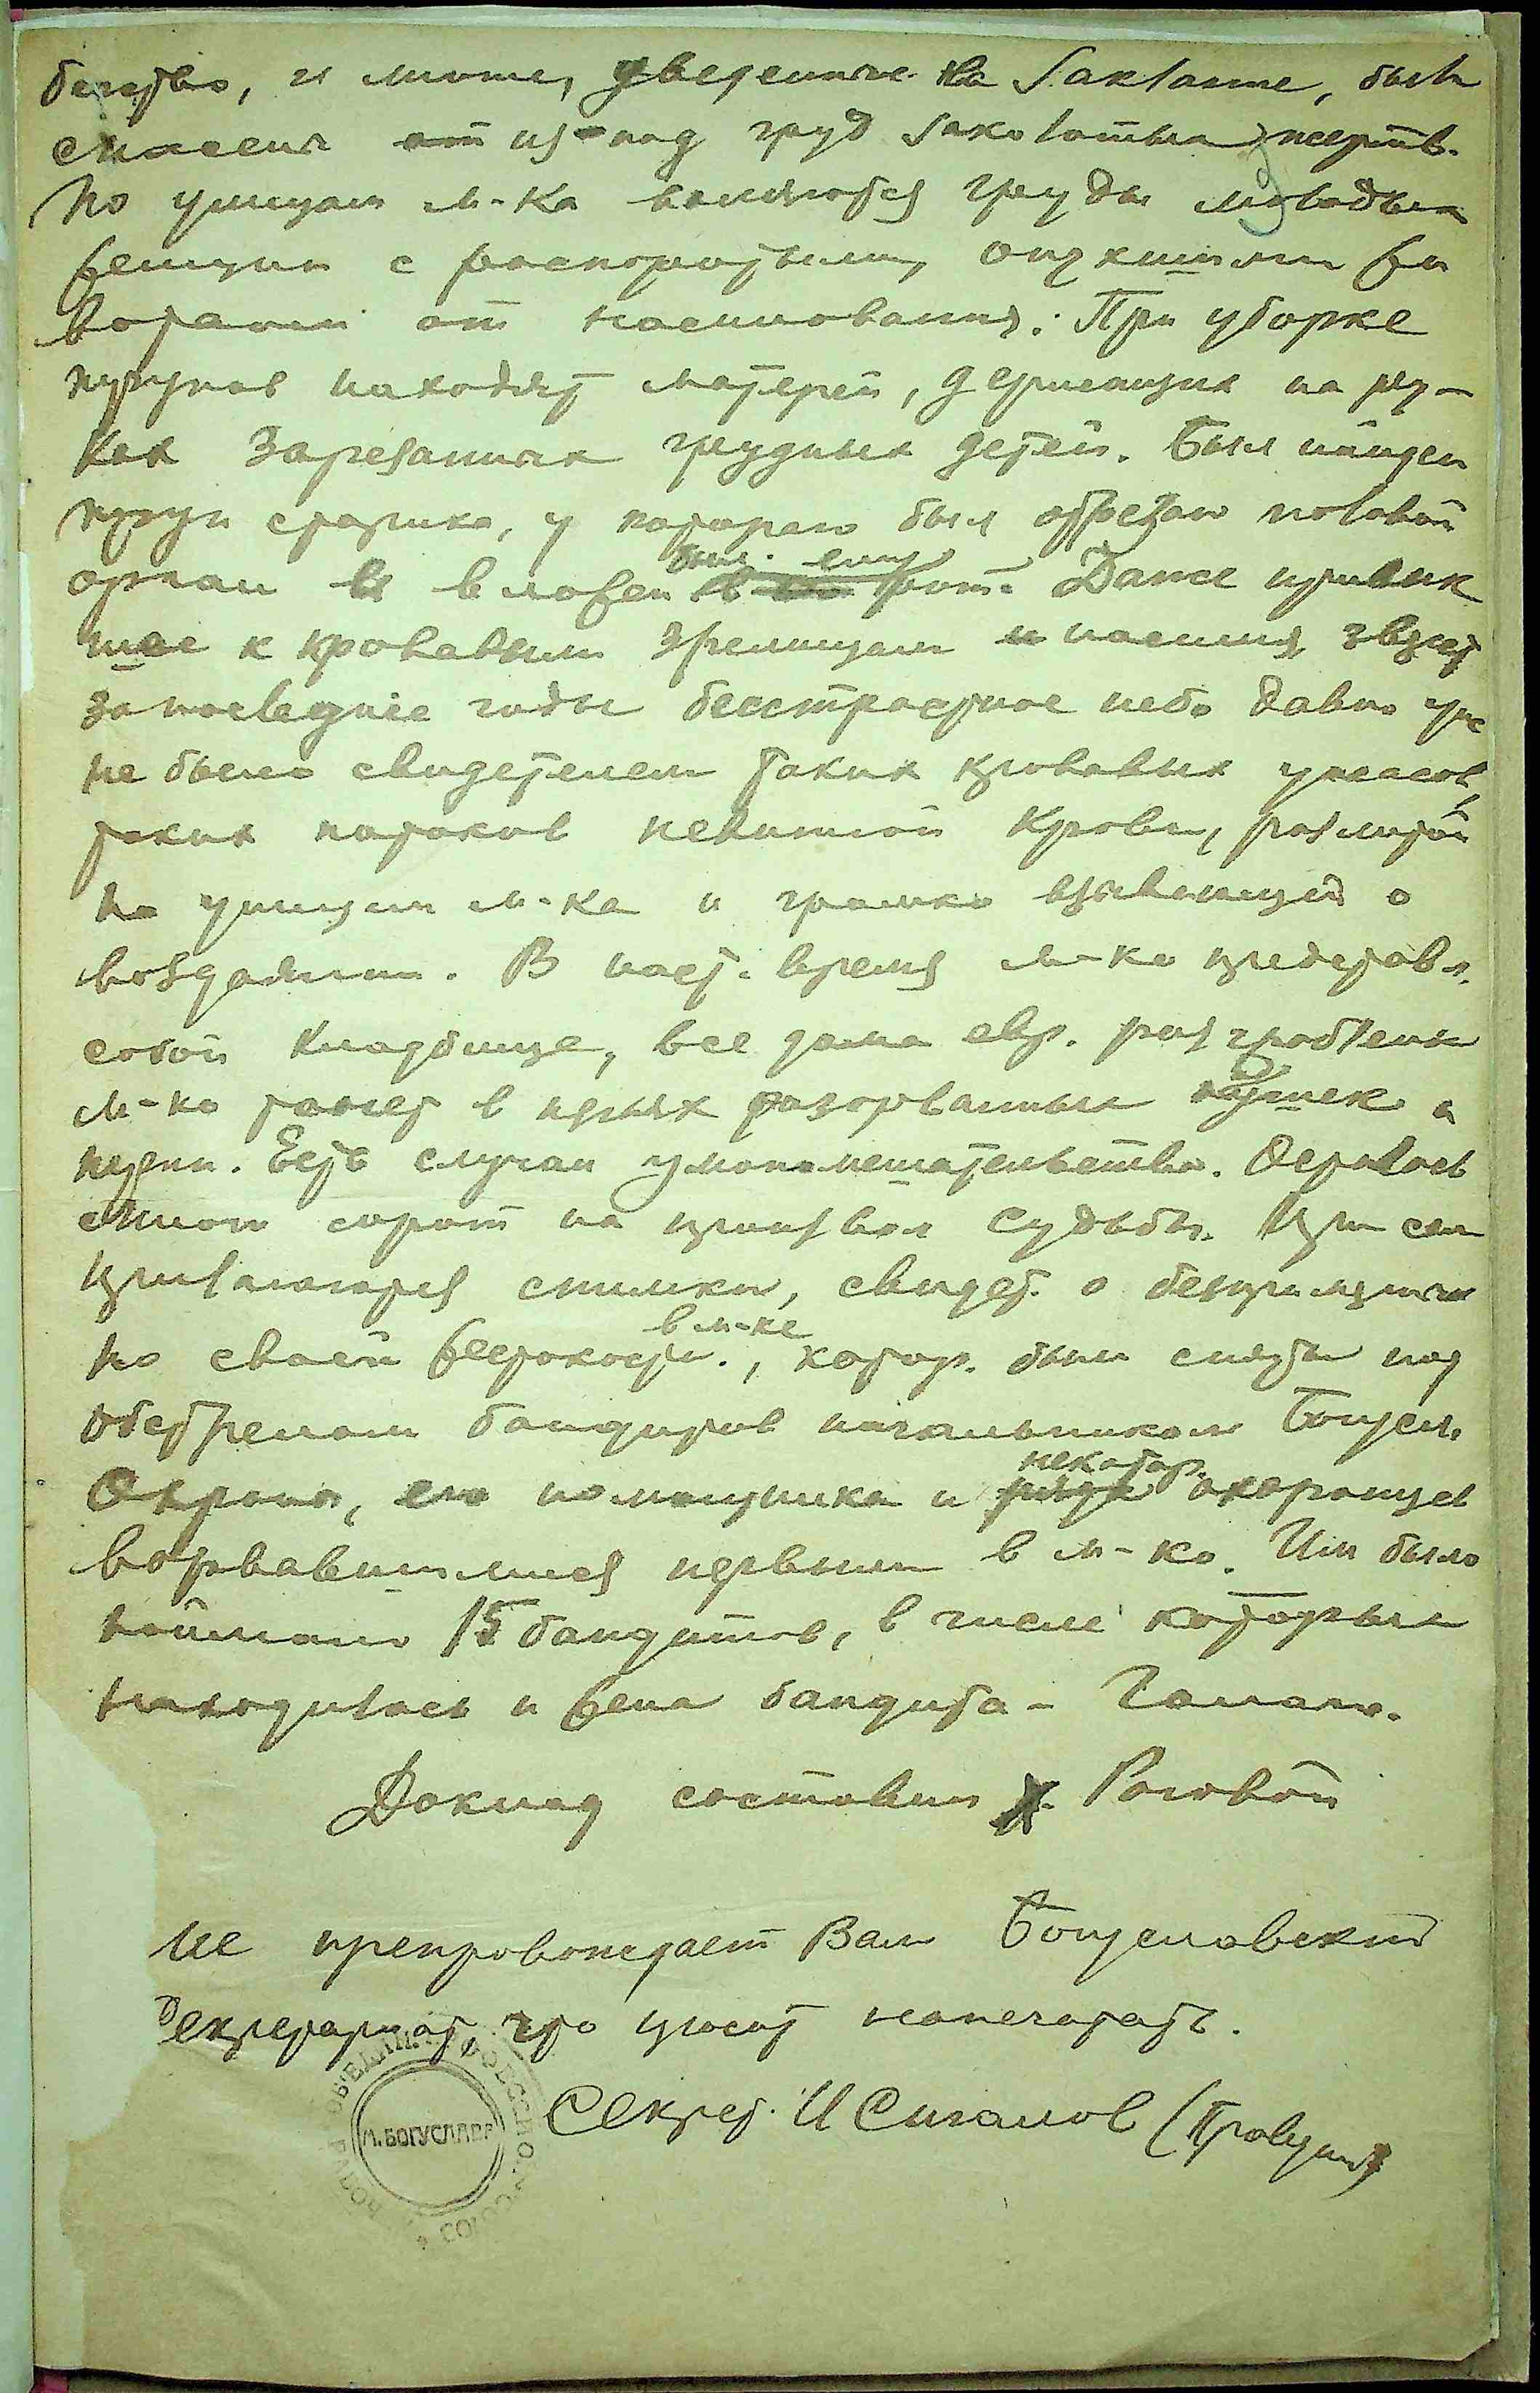 бегство, и многие, уведенные на заклание, были
спасены из-под груд заколотых жертв.
По улицам м-ка валяются груды молодых
женщин с распоротыми, опухшими жи
вотами от насилования. При уборке
трупов находят матерей, держащих на ру-
ках зарезанных грудных детей. Был найден
труп старика, у которого был отрезан половой
орган и вложен был ему в рот. Даже привык
шее к кровавым зрелищам и насилия зверств
за последние годы бесстрастное небо давно уже
не было свидетелем таких кровавых ужасов,
таких потоков невинной крови, разлитой
по улицам м-ка и громко взывающей о
воздаянии. В наст. время м-ко представл.
собой кладбище, все дома евр. разграблены
м-ко тонет в перьях разорванных подушек и
перин. Есть случаи умопомешательства. Осталось
много сирот на произвол судьбы. При сем
прилагаются снимки, свидет. о беспримерных
по своей жестокости в м-ке, котор. были сняты под
обстрелом бандитов начальником Богусл.
Охраны, его помощника и некотор. охоронцев
ворвавшимися первыми в м-ко. Им было
поймано 15 бандитов, в числе которых
находилась и жена бандита-
Доклад составил Х. Роговой
не препровождает Вам Богуславский
Секретариат, что просит напечатать.
Секрет. И Сигалов
М. БОГУСЛАВА